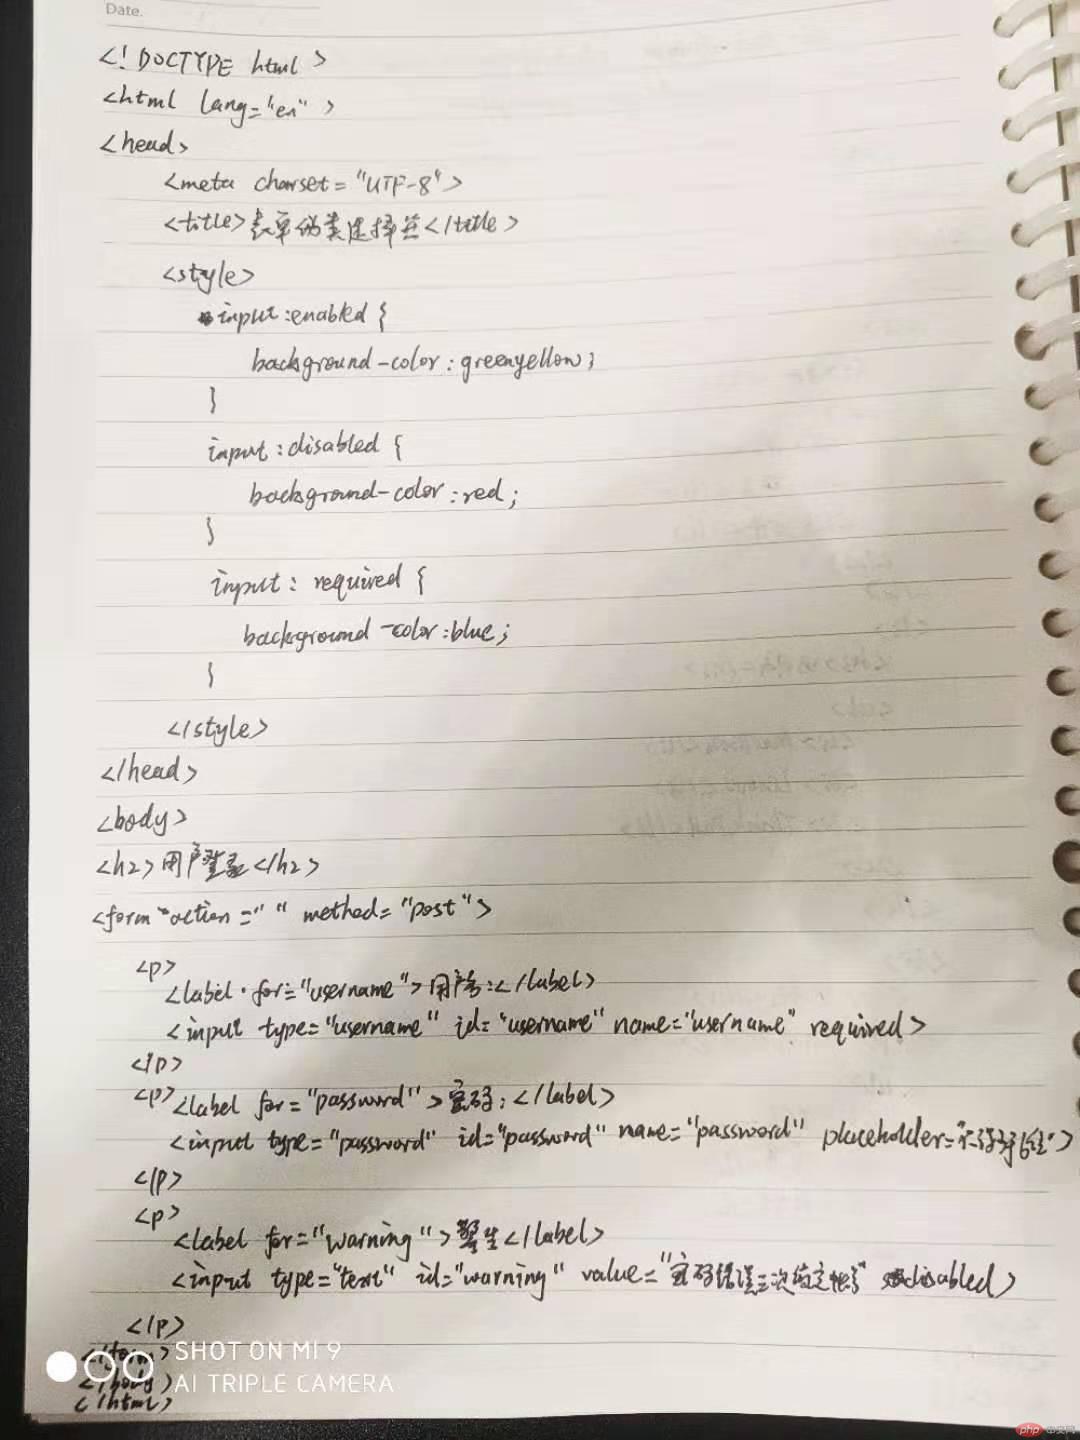 Date.
<! DOCTYPE html >
<html lang="en" >
<head>
<meta charset="UTF-8">
<title>表单伪类选择器</title>
<style>
input:enabled {
background-color:greenyellow;
}
input:disabled {
background-color:red;
}
input: required {
background-color:blue;
}
</style>
</head>
<body>
<h2>用户登录</h2>
<form action=" " method="post">
<p>
<label for="username">用户名:</label>
<input type="username" id="username" name="username" required>
</p>
<p><label for="password">密码:</label>
<input type="password" id="password" name="password" placeholder="不得于6位">
</p>
<p>
<label for="warning"></label>
<input type="text" id="warning" value="密码错误三次锁定帐号" disabled>
</p>
</form>
</body>
</html>
SHOT ON MI 9
AI TRIPLE CAMERA
php 中文网